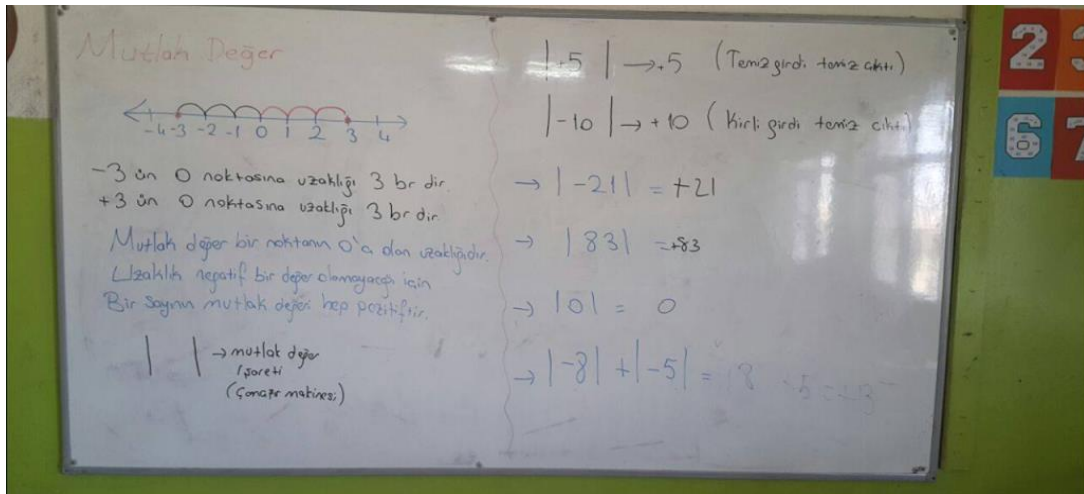 Mutlak Değer
-4 -3 -2 -1 0 1 2 3 4
-3 ün 0 noktasına uzaklığı 3 br dir.
+3 ün 0 noktasına uzaklığı 3 br dir.
Mutlak değer bir noktanın 0'a olan uzaklığıdır.
Uzaklık negatif bir değer olamayacağı için
Bir sayının mutlak değeri hep pozitiftir.
| | → mutlak değer
işareti
(Çamaşır makinesi)
|+5| → +5 (Temiz girdi temiz çıktı)
|-10| → +10 (Kirli girdi temiz çıktı)
→ |-21| = +21
→ |83| = +83
→ |0| = 0
→ |-8| + |-5| = 8
2
3
6
7